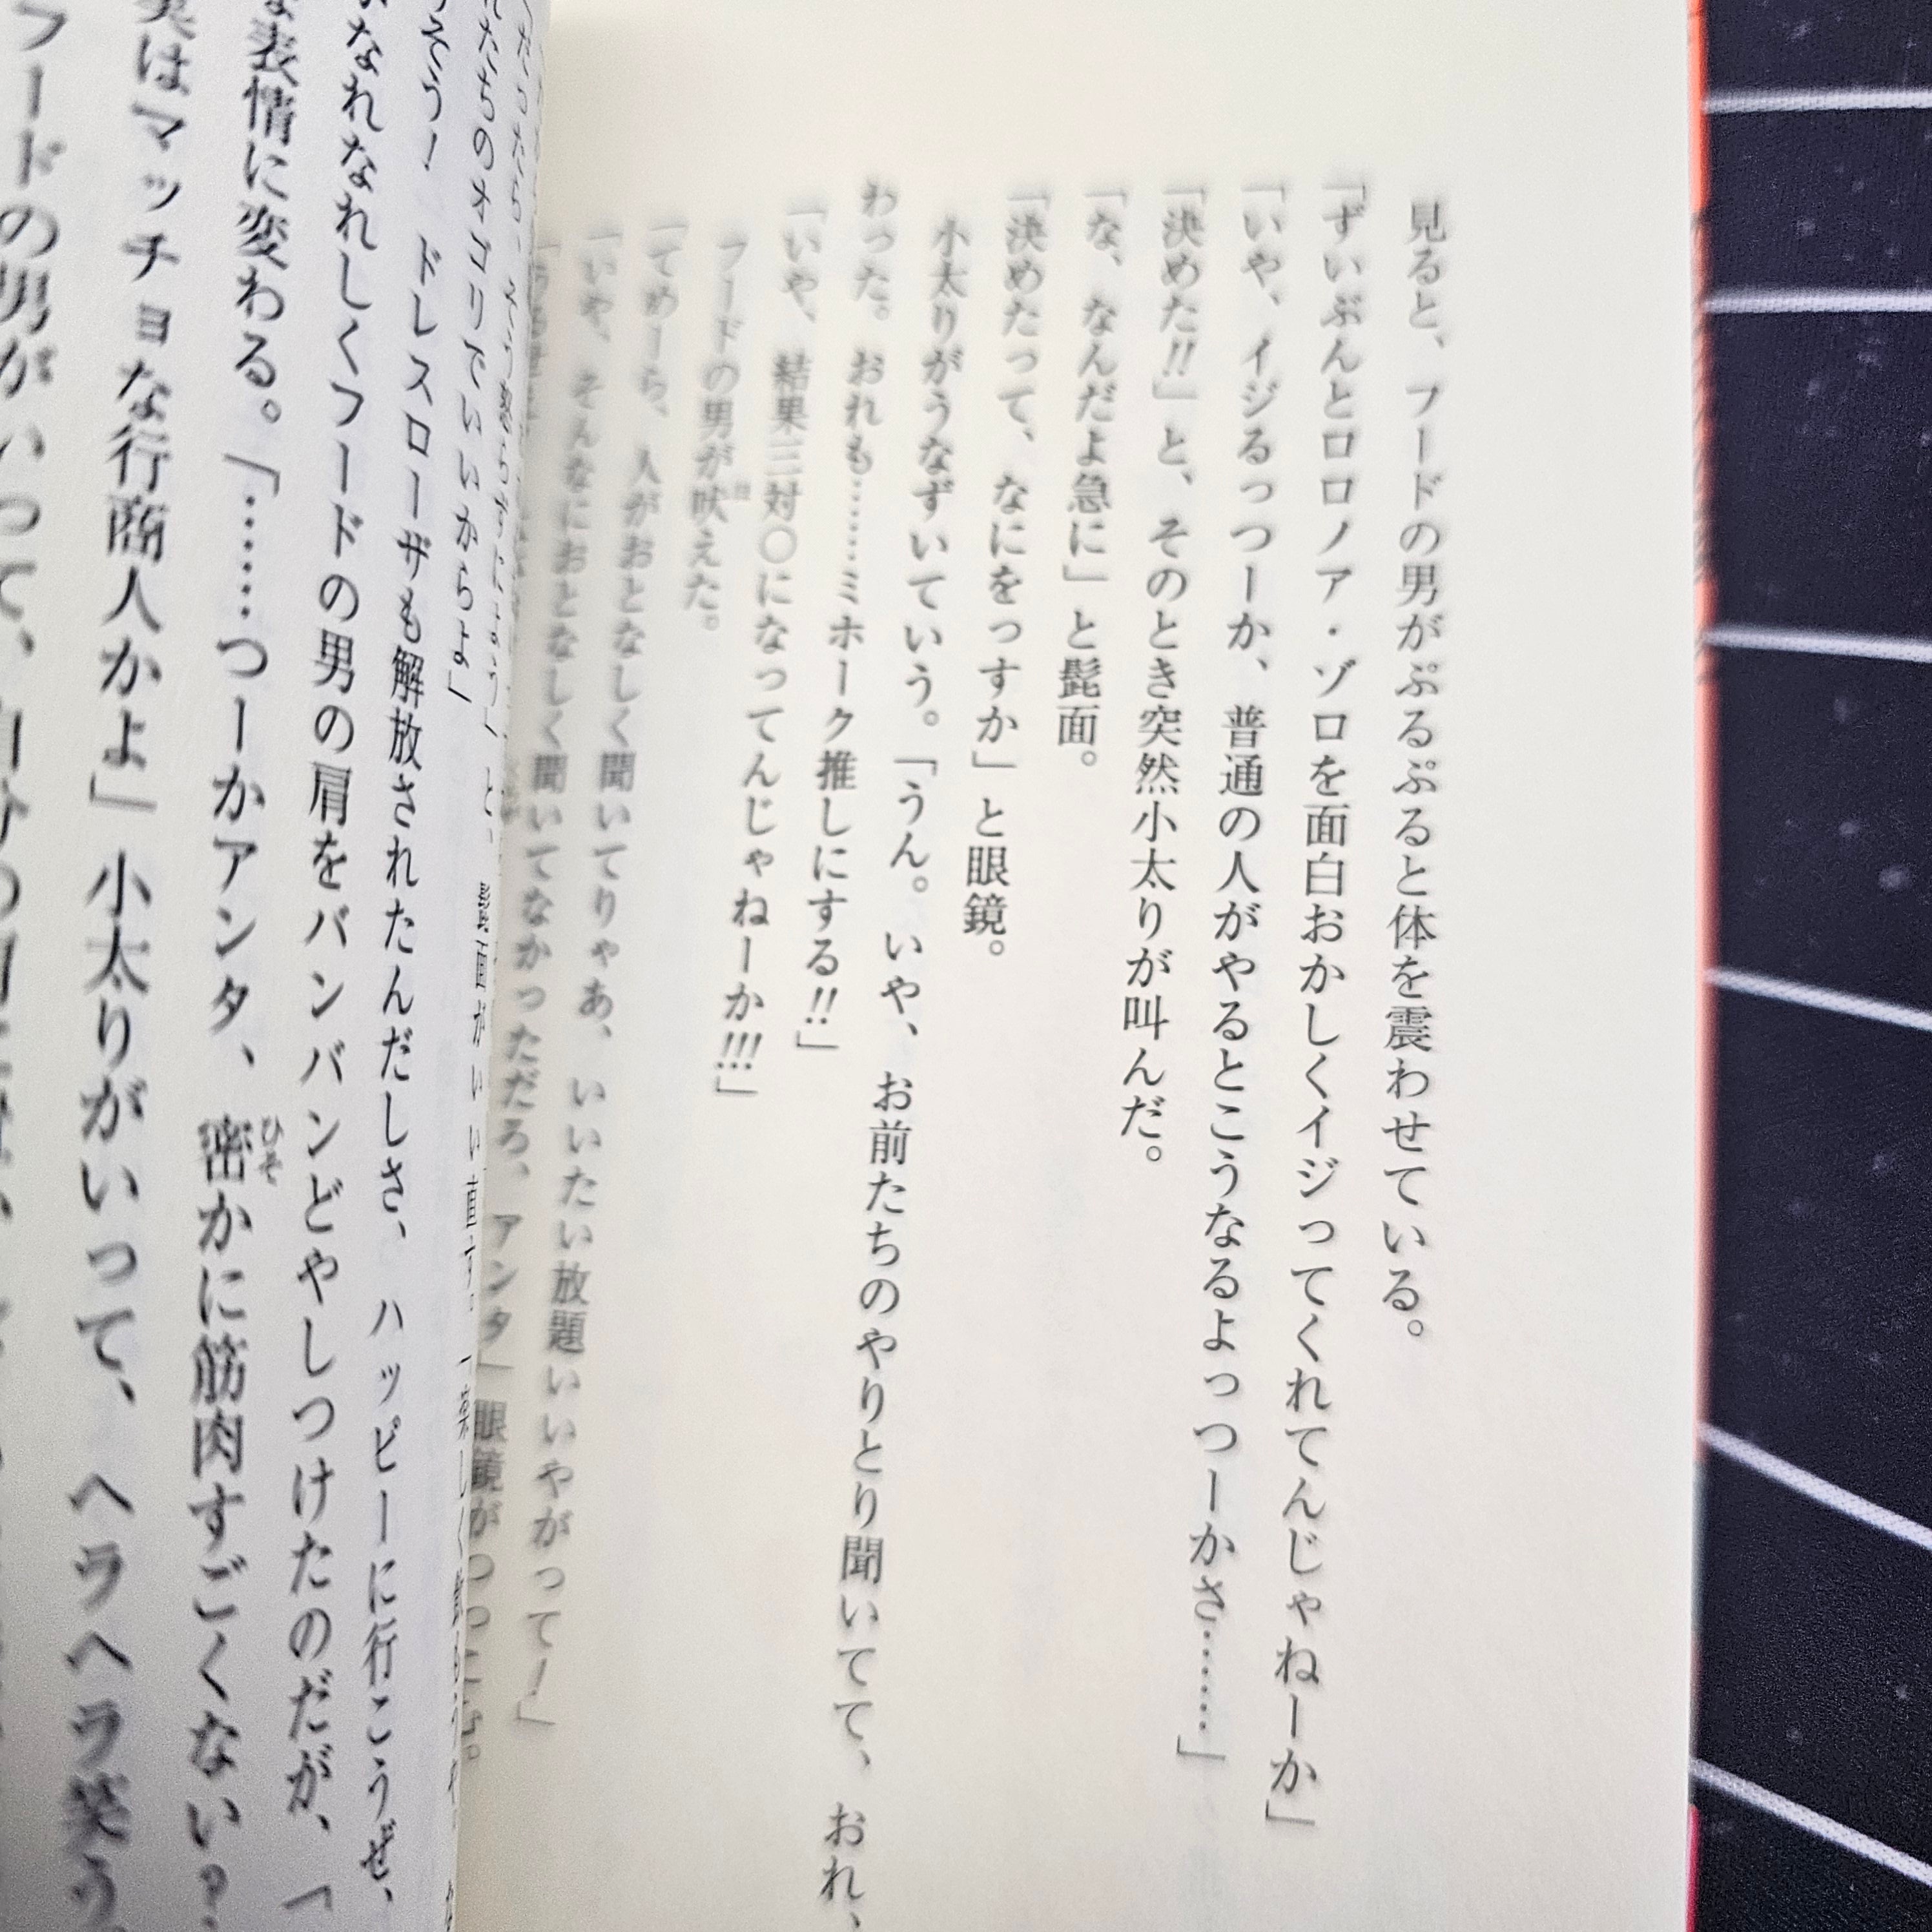 見ると、フードの男がぷるぷると体を震わせている。
「ずいぶんとロロノア・ゾロを面白おかしくイジってくれてんじゃねーか」
「いや、イジるっつーか、普通の人がやるとこうなるよっつーかさ……」
「決めた!!」と、そのとき突然小太りが叫んだ。
「な、なんだよ急に」と髭面。
「決めたって、なにをっすか」と眼鏡。
小太りがうなずいていう。「うん。いや、お前たちのやりとり聞いてて、おれ、
わった。おれも……ミホーク推しにする!!」
「いや、結果三対〇になってんじゃねーか!!!」
フードの男が吠えた。
「てめーら、人がおとなしく聞いてりゃあ、いいたい放題いいやがって!」
「いや、そんなにおとなしく聞いてなかっただろ、アンタ」眼鏡が
たちのオゴリでいいからよ」
そう! ドレスローザも解放されたんだしさ、ハッピーに行こうぜ、
なれなれしくフードの男の肩をバンバンどやしつけたのだが、「
表情に変わる。「……つーかアンタ、密かに筋肉すごくない?
実はマッチョな行商人かよ」小太りがいって、ヘラヘラ笑う
フードの男がいって、